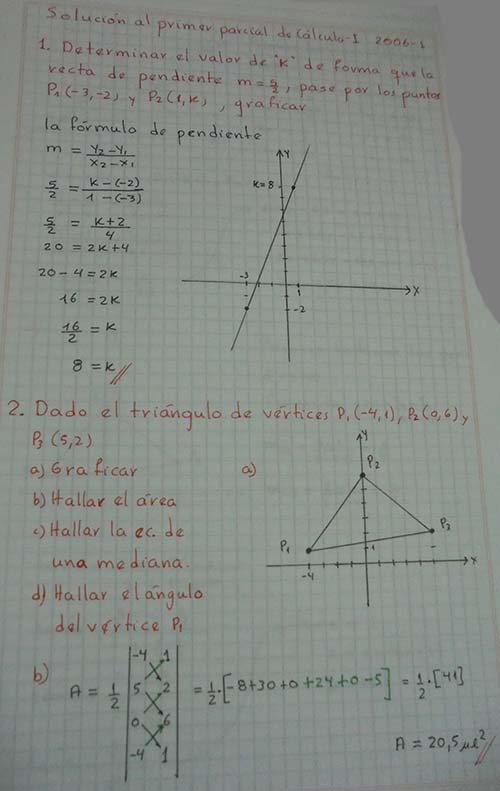 Solución al primer parcial de Cálculo-I 2006-1
1. Determinar el valor de "K" de forma que la
recta de pendiente m = 5/2, pase por los puntos
P₁(-3,-2) y P₂(1,K), graficar
la fórmulo de pendiente
m = (Y₂-Y₁)/(X₂-X₁)
5/2 = (K-(-2))/(1-(-3))
5/2 = (K+2)/4
20 = 2K+4
20-4 = 2K
16 = 2K
16/2 = K
8 = K //
Y
K=8
-3
1
X
-2
2. Dado el triángulo de vértices P₁(-4,1), P₂(0,6) y
P₃(5,2)
a) Graficar
b) Hallar el área
c) Hallar la ec. de
una mediana.
d) Hallar el ángulo
del vértice P₁
a)
Y
P₂
P₃
P₁
1
-4
X
b)
A = 1/2 | -4 1
5 2
0 6
-4 1 | = 1/2·[-8+30+0+24+0-5] = 1/2·[41]
A = 20,5 μl² //